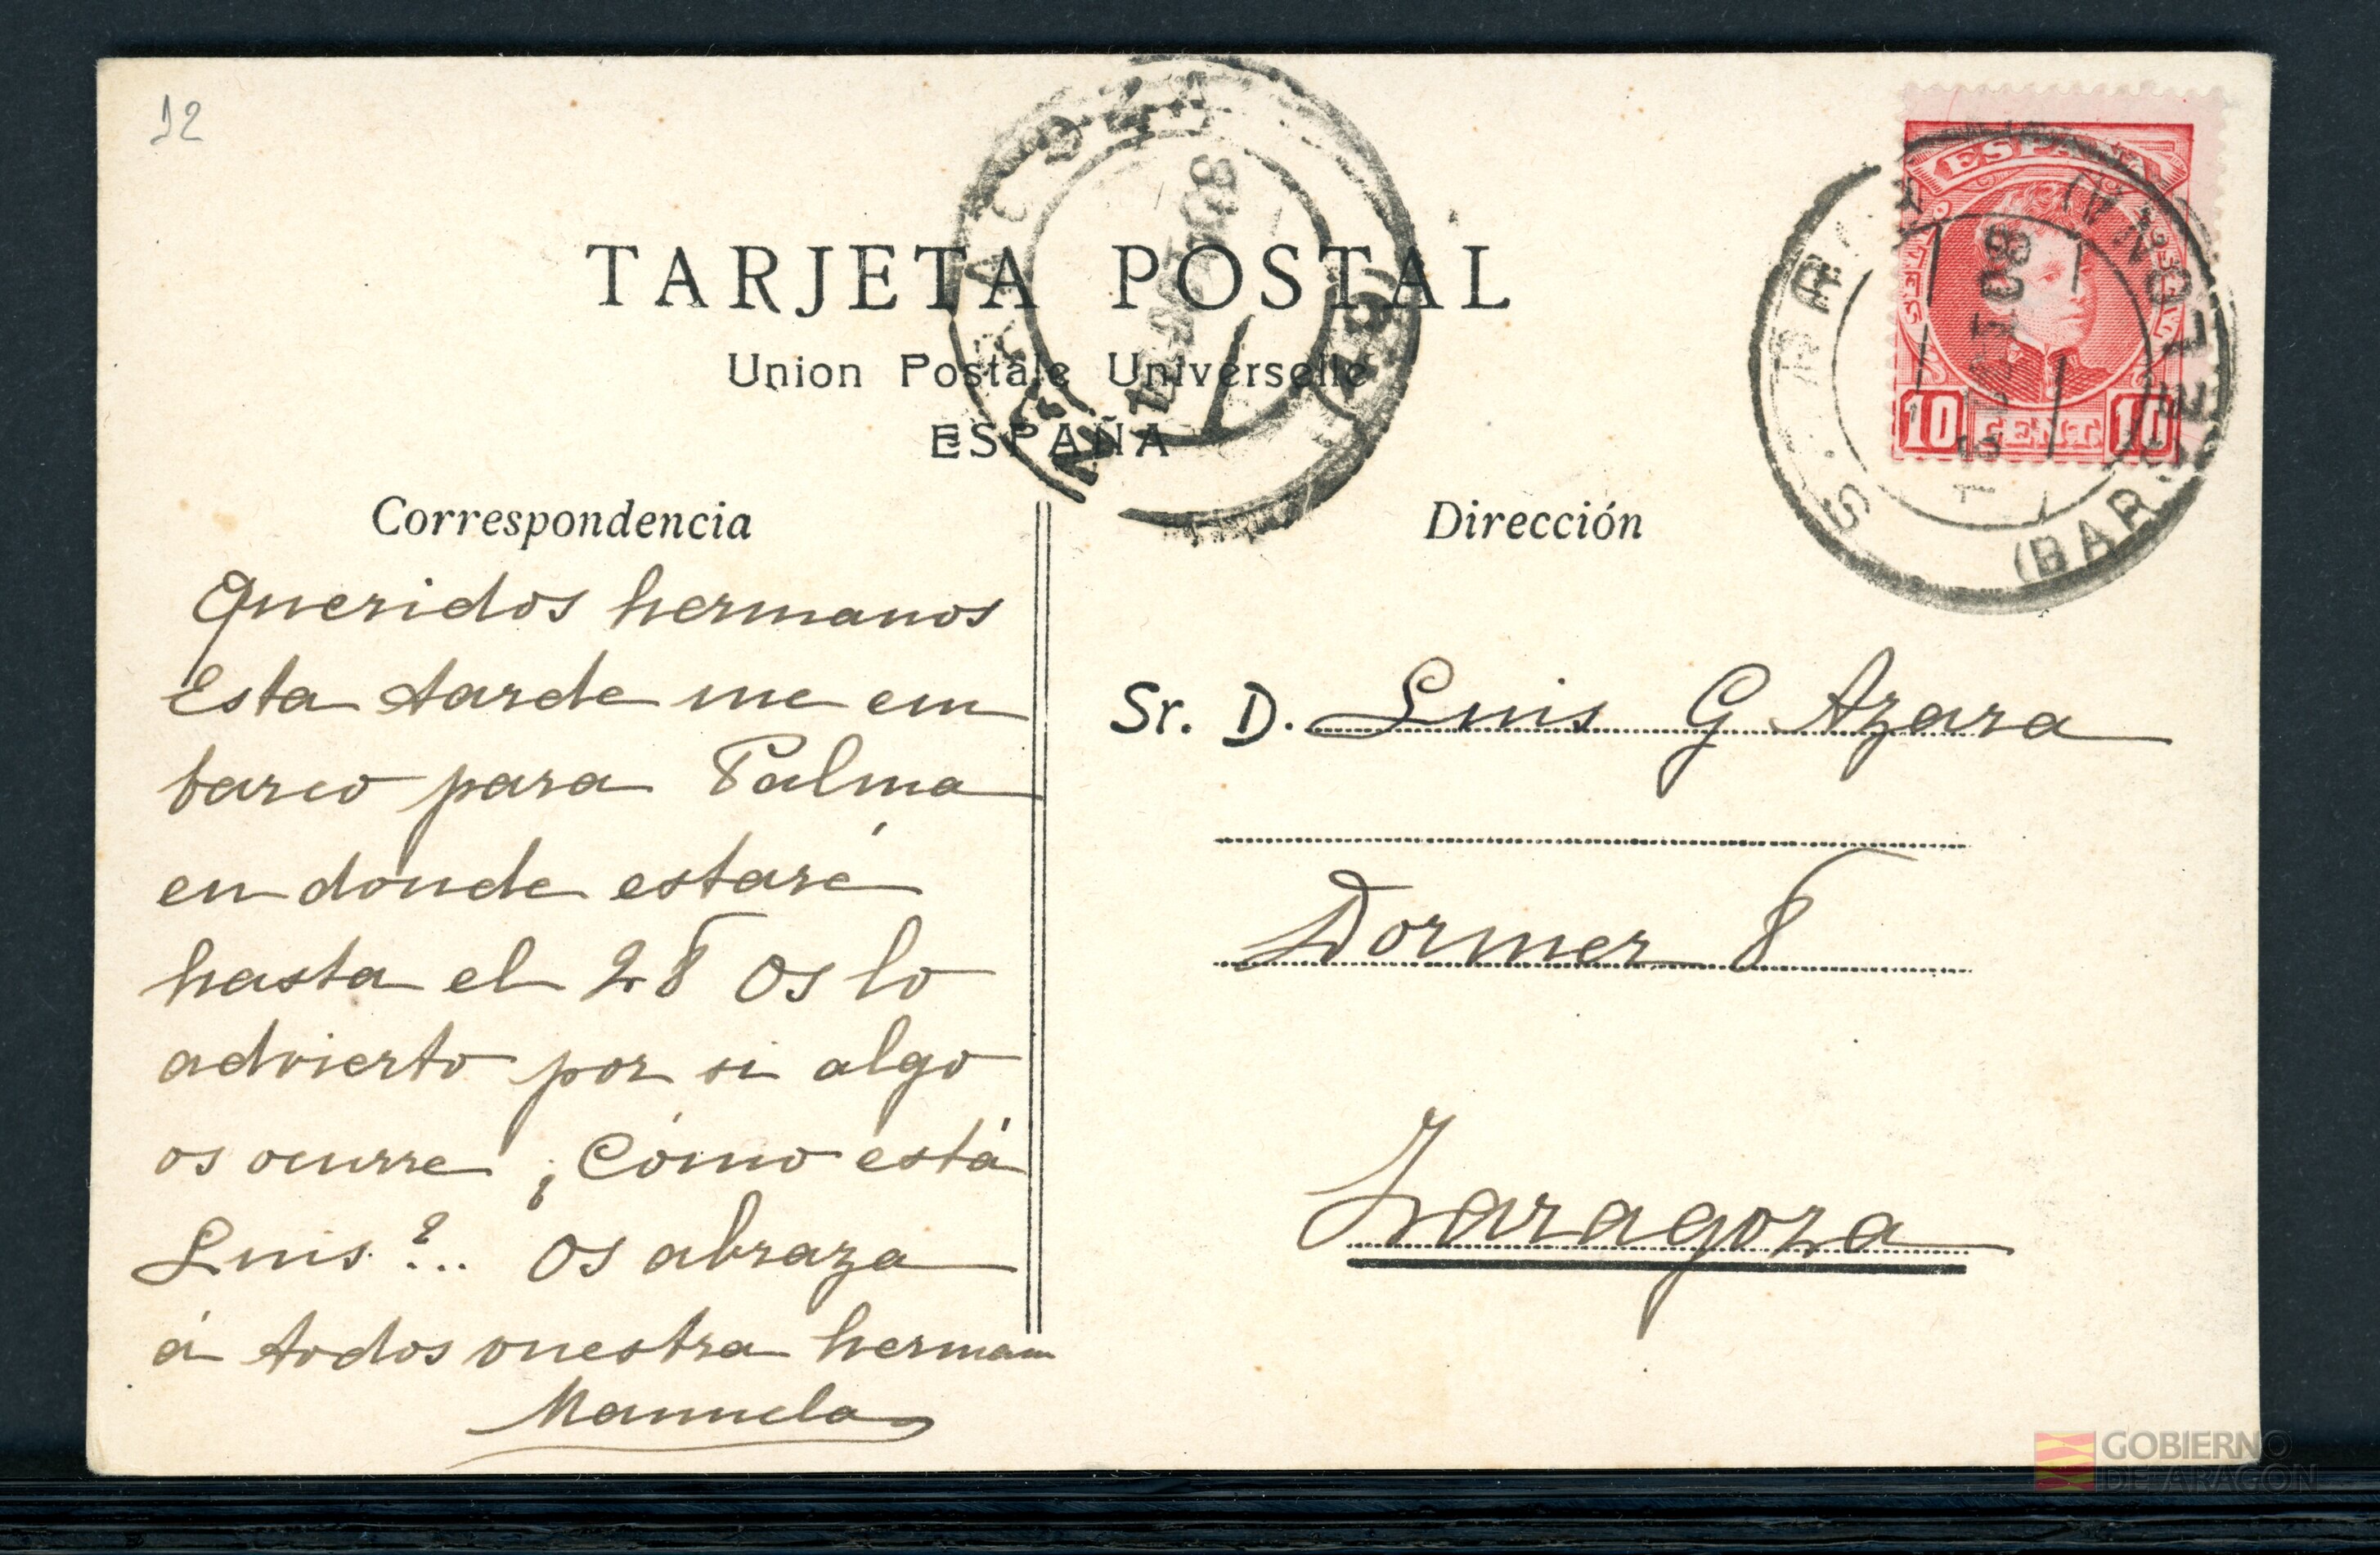 12
TARJETA POSTAL
Union Postale Universelle
ESPAÑA
Correspondencia
Queridos hermanos
Esta tarde me em
barco para Palma
en dónde estaré
hasta el 28 os lo
advierto por si algo
os ocurre ¿Cómo está
Luis?.. Os abraza
á todos vuestra herman
Manuela
Dirección
Sr. D. Luis G Azara
Dormer 8
Zaragoza
ESPAÑA
10 CENT. 10
(BARCELONA)
OCT 08
GOBIERNO
DE ARAGON